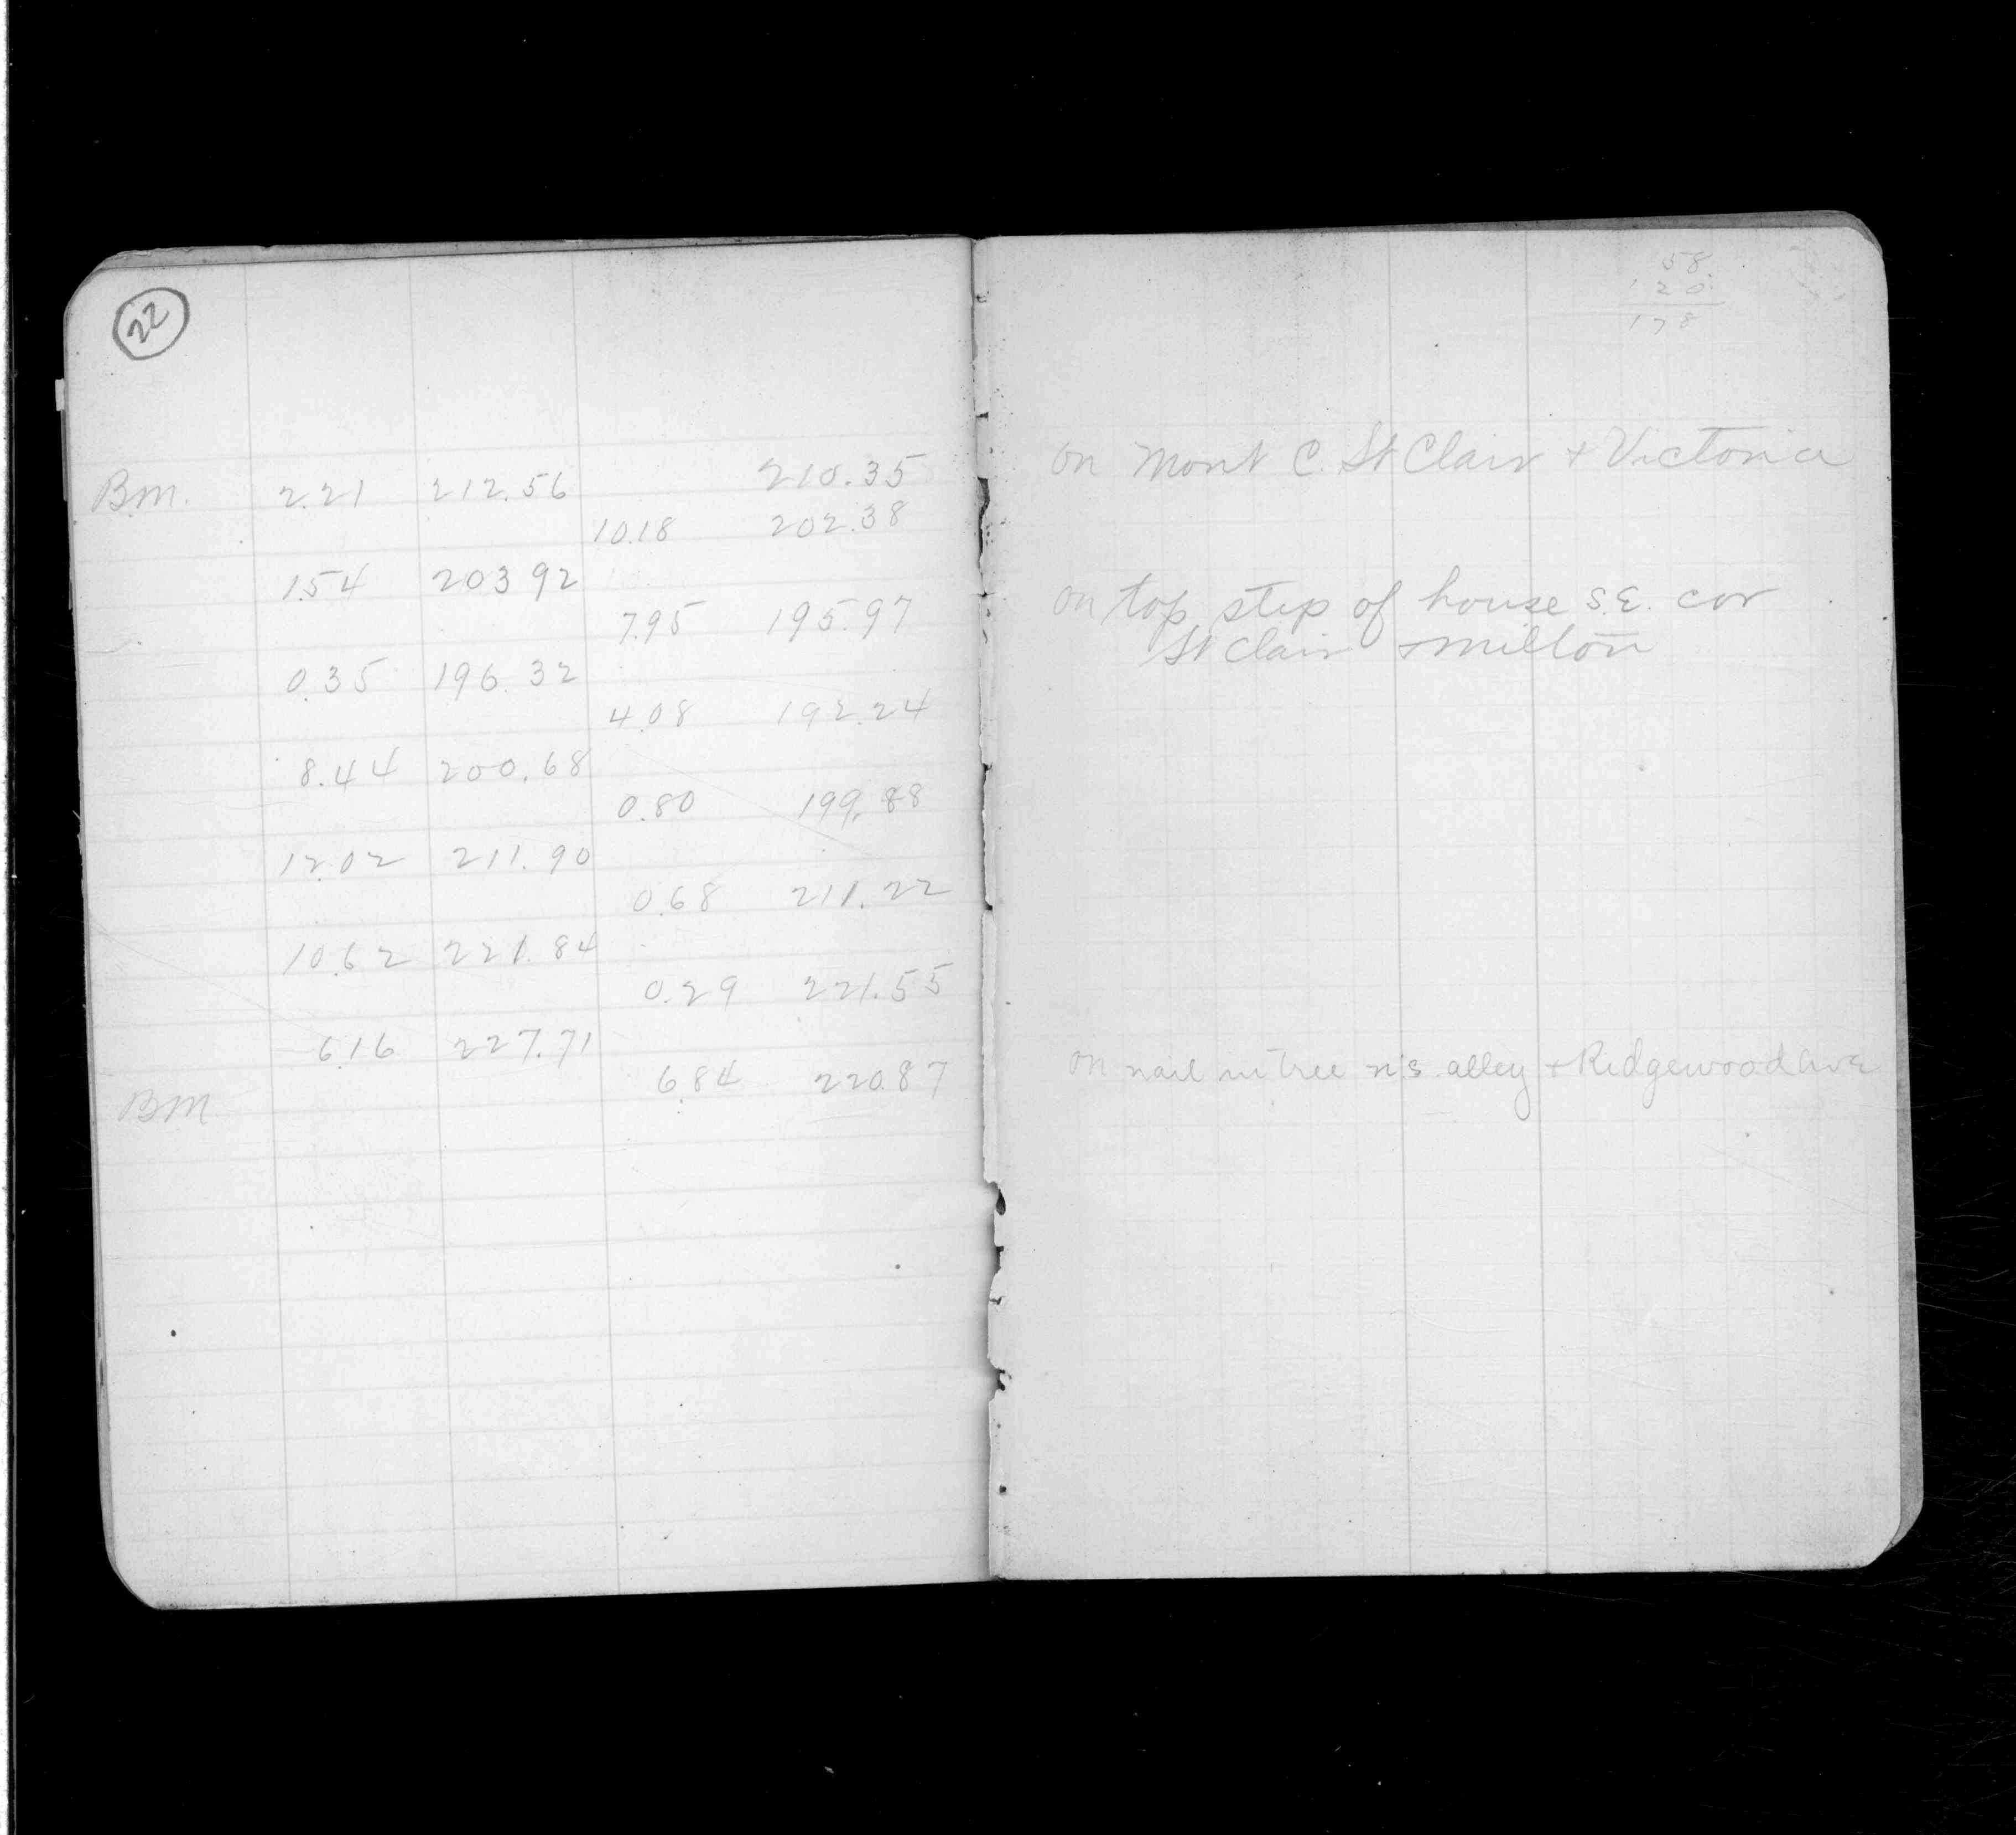 22
B.M. 2.21 212.56 210.35
10.18 202.38
1.54 203 92
7.95 195.97
0.35 196.32
4.08 192.24
8.44 200.68
0.80 199.88
12.02 211.90
0.68 211.22
10.62 221.84
0.29 221.55
6.16 227.71
6.84 220.87
BM
58.
120.
178
on Mont C. St Clair + Victoria
on top step of house S.E. cor
St Clair + Milton
on nail in tree n.s. alley + Ridgewood Ave